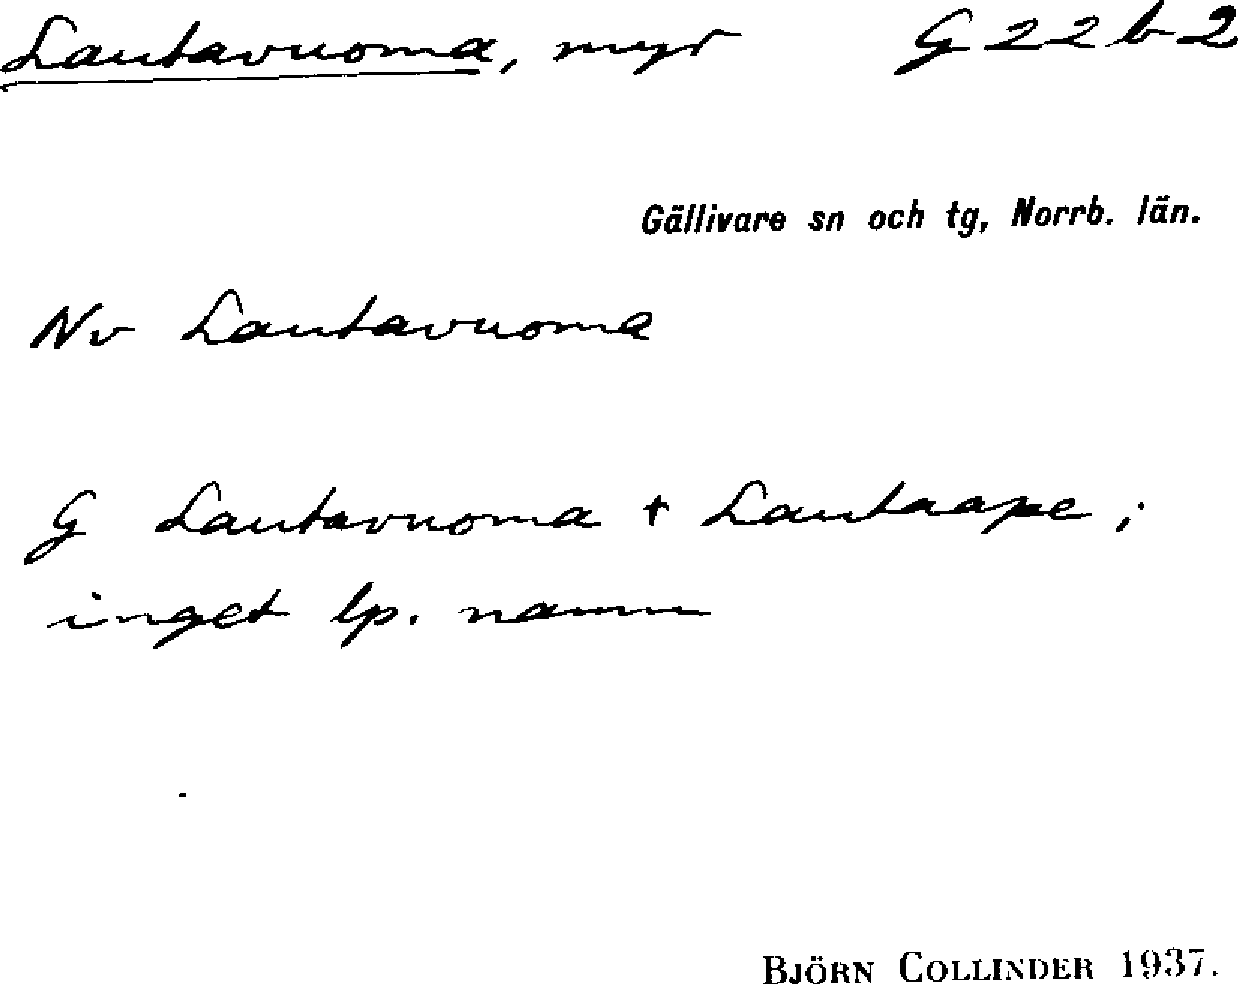 Lautavuoma, myr G 22 b 2
Gällivare sn och tg, Norrb. län.
Nv Lautavuoma
G Lautavuoma + Lautaape ;
inget lp. namn
BJÖRN COLLINDER 1937.